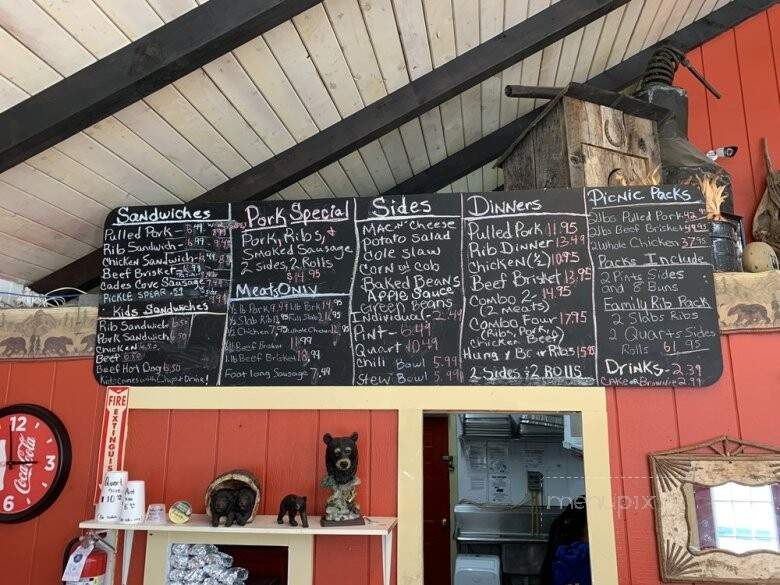 Sandwiches
Pulled Pork-
Rib Sandwich-
Chicken Sandwich-
Beef Brisket
Cades Cove Sausage
PICKLE SPEAR-
Kids Sandwiches
Rib Sandwich 6.50
Pork Sandwich
Chicken 6.50
Beef 6.50
Beef Hot Dog 6.50
Kids comes with Chips & Drink!
Pork Special
Pork, Ribs, &
Smoked Sausage
2 sides, 2 Rolls
$14.95
Meats Only
1/2 lb Pork 9.49 1 lb Pork 14.95
1/2 Slab 1 Slab
1/2 Chicken 7.95 Whole Chicken
1/2 lb Beef Brisket 11.99
1 lb Beef Brisket 18.99
Foot long Sausage 7.49
Sides
Mac-n-Cheese
potato salad
Cole slaw
Corn on Cob
Baked Beans
Apple Sauce
Green Beans
Individual- 2.49
Pint- 6.49
Quart 10.49
Chili Bowl 5.99
Stew Bowl 5.99
Dinners
Pulled Pork 11.95
Rib Dinner 13.49
Chicken (1/2) 10.95
Beef Brisket 13.95
Combo 2- 14.95
(2 meats)
Combo Four 17.95
(Ribs, Pork,
Chicken Beef)
Hung y Be r Ribs 15.95
2 Sides & 2 Rolls
Picnic Packs
2lbs Pulled Pork 42.95
2lbs Beef Brisket 49.95
2 Whole Chicken 37.95
Packs Include
2 Pints Sides
and 8 Buns
Family Rib Pack
2 Slabs Ribs
2 Quarts Sides
Rolls 61.95
Drinks- 2.39
Cake or Brownie 2.99
FIRE
EXTINGUISHER
12
3
6
Coca-Cola
menupix